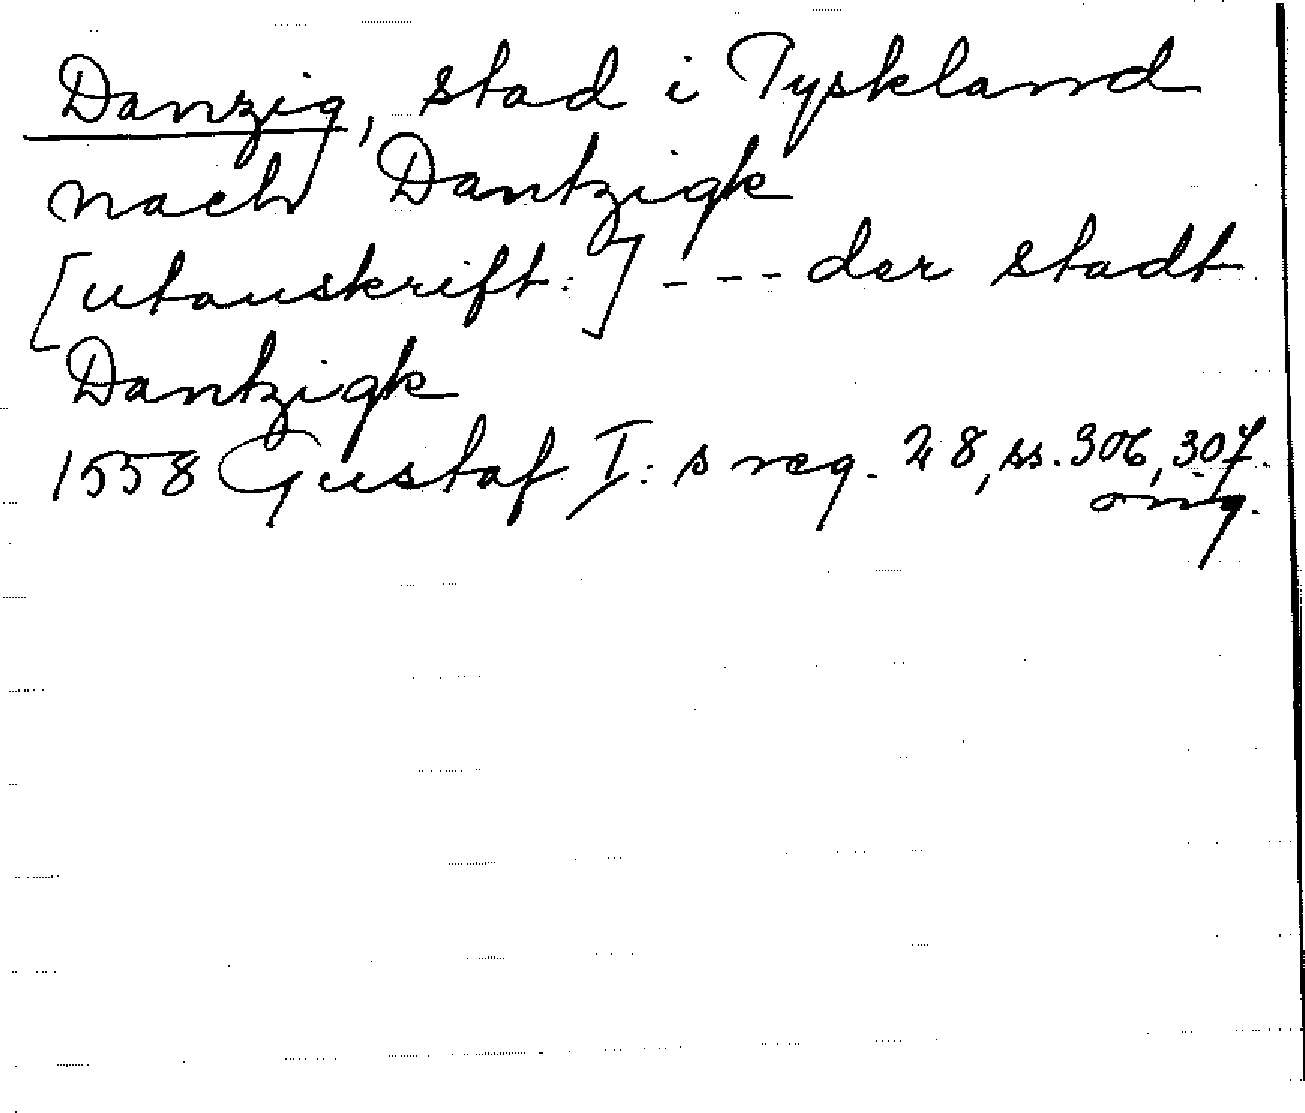 Danzig, stad i Tyskland
nach Dantzigk
[utanskrift:] - - - der Stadt
Dantzigk
1558 Gustaf I:s reg. 28, ss. 306, 307.
orig.